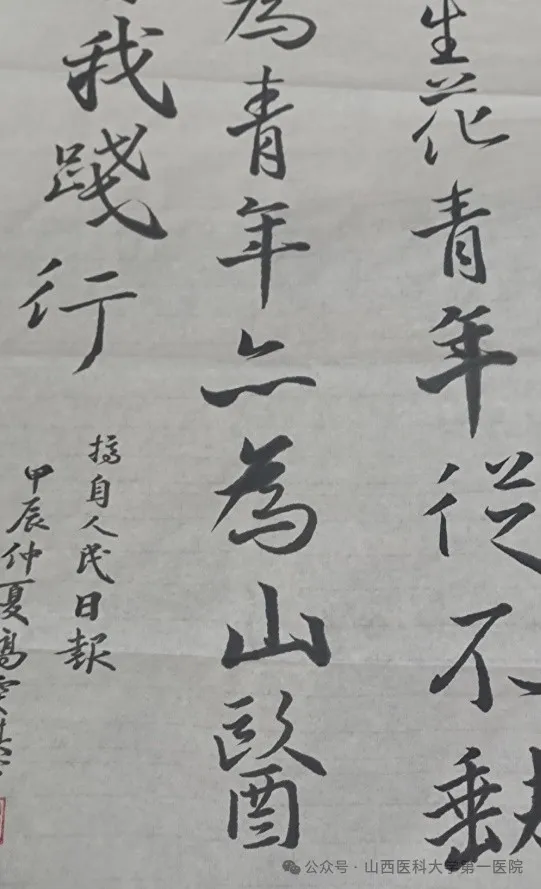 生花青年從不
為青年亦為山醫
我踐行
摘自人民日報
甲辰仲夏高
公众号·山西医科大学第一医院